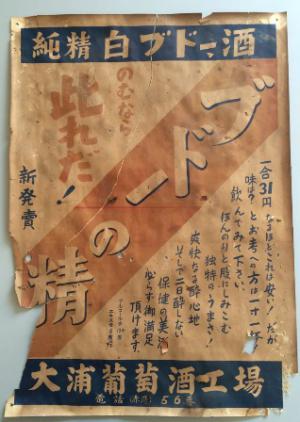 純精 白ブドー酒
のむなら
此れだ!
ブドーの精
新発賣
一合31円 なるほどこれは安い! だが
味は? とお考への方は一寸一杯
飲んでみて下さい。
ほんのりと腹にしみこむ
独特のうまさ!
爽快なる酔心地
そして二日酔しない
保健の美酒
必らず御満足
頂けます。
大浦葡萄酒工場
電話 56番